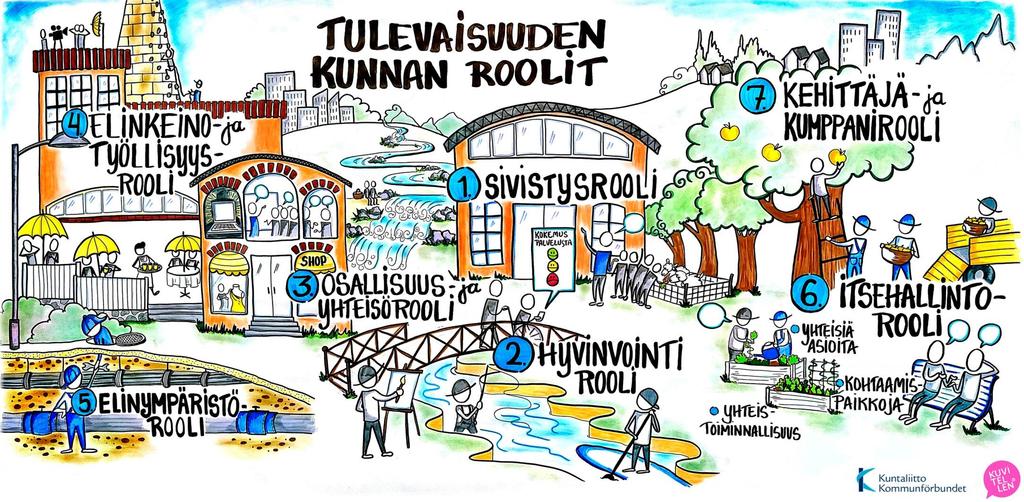 TULEVAISUUDEN
KUNNAN ROOLIT
4 ELINKEINO- ja
TYÖLLISYYS-
ROOLI
7. KEHITTÄJÄ- ja
KUMPPANIROOLI
1. SIVISTYSROOLI
KOKEMUS
PALVELUSTA
SHOP
3 OSALLISUUS- ja
YHTEISÖROOLI
6. ITSEHALLINTO-
ROOLI
2. HYVINVOINTI
ROOLI
YHTEISIÄ
ASIOITA
KOHTAAMIS-
PAIKKOJA
YHTEIS-
TOIMINNALLISUUS
5 ELINYMPÄRISTÖ-
ROOLI
Kuntaliitto
Kommunförbundet
KUVI
TEL
LEN